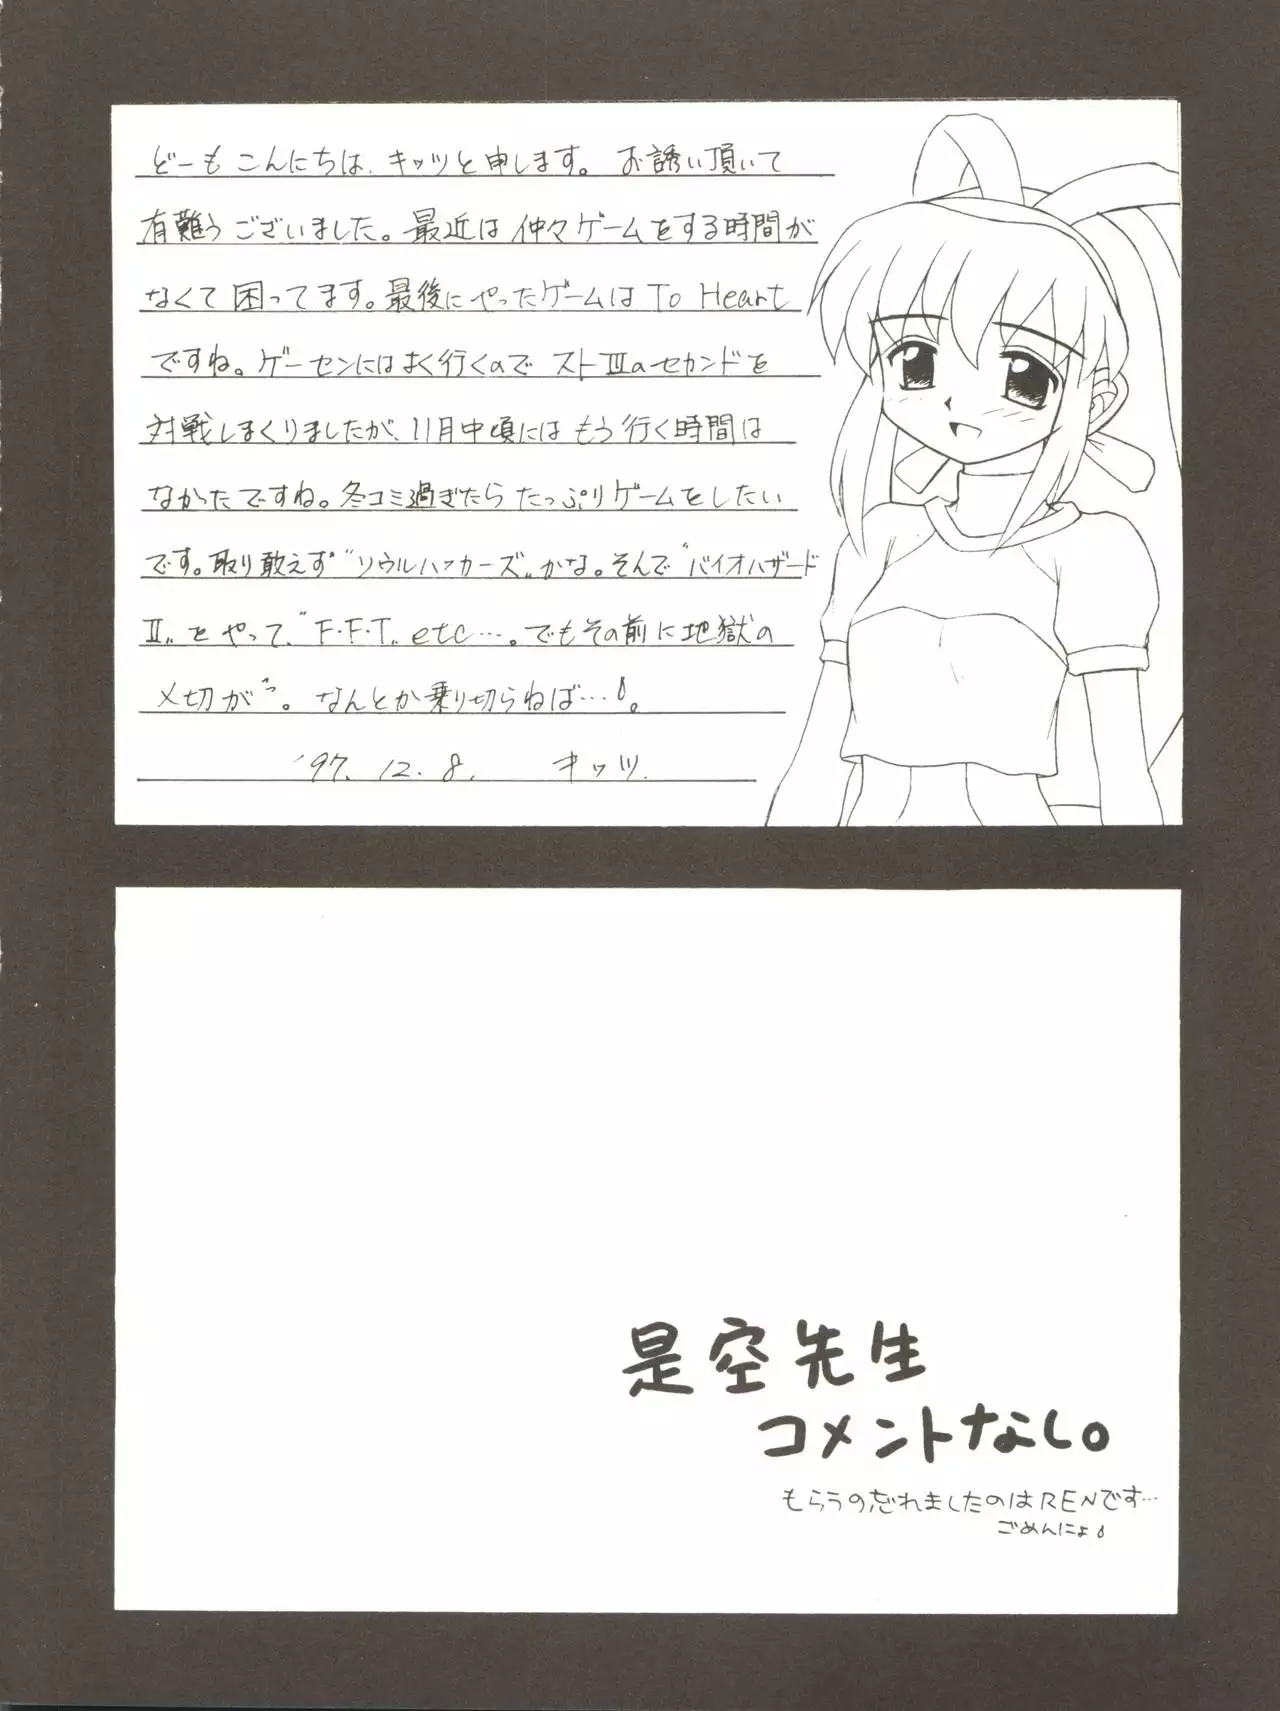 どーもこんにちは、キッツと申します。お誘い頂いて
有難うございました。最近は仲々ゲームをする時間が
なくて困ってます。最後にやったゲームは To Heart
ですね。ゲーセンにはよく行くので ストⅢのセカンドを
対戦しまくりましたが、11月中頃にはもう行く時間は
なかったですね。冬コミ過ぎたらたっぷりゲームをしたい
です。取り敢えず"ソウルハッカーズ"かな。そんで"バイオハザード
Ⅱ"をやって、"F・F・T" etc…。でもその前に地獄の
〆切がっ。なんとか乗り切らねば…。
'97. 12. 8. キッツ.
是空先生
コメントなし。
もらうの忘れましたのはRENです…
ごめんにょ